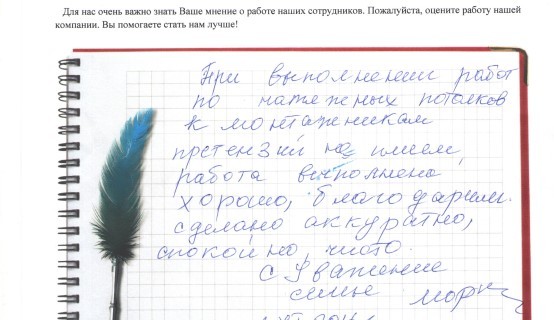 Для нас очень важно знать Ваше мнение о работе наших сотрудников. Пожалуйста, оцените работу нашей
компании. Вы помогаете стать нам лучше!
При выполнении работ
по натяжных потолков
к монтажникам
претензий не имеем,
работа выполнена
хорошо, благодарим.
сделано аккуратно,
спокойно, чисто.
С Уважением
семья